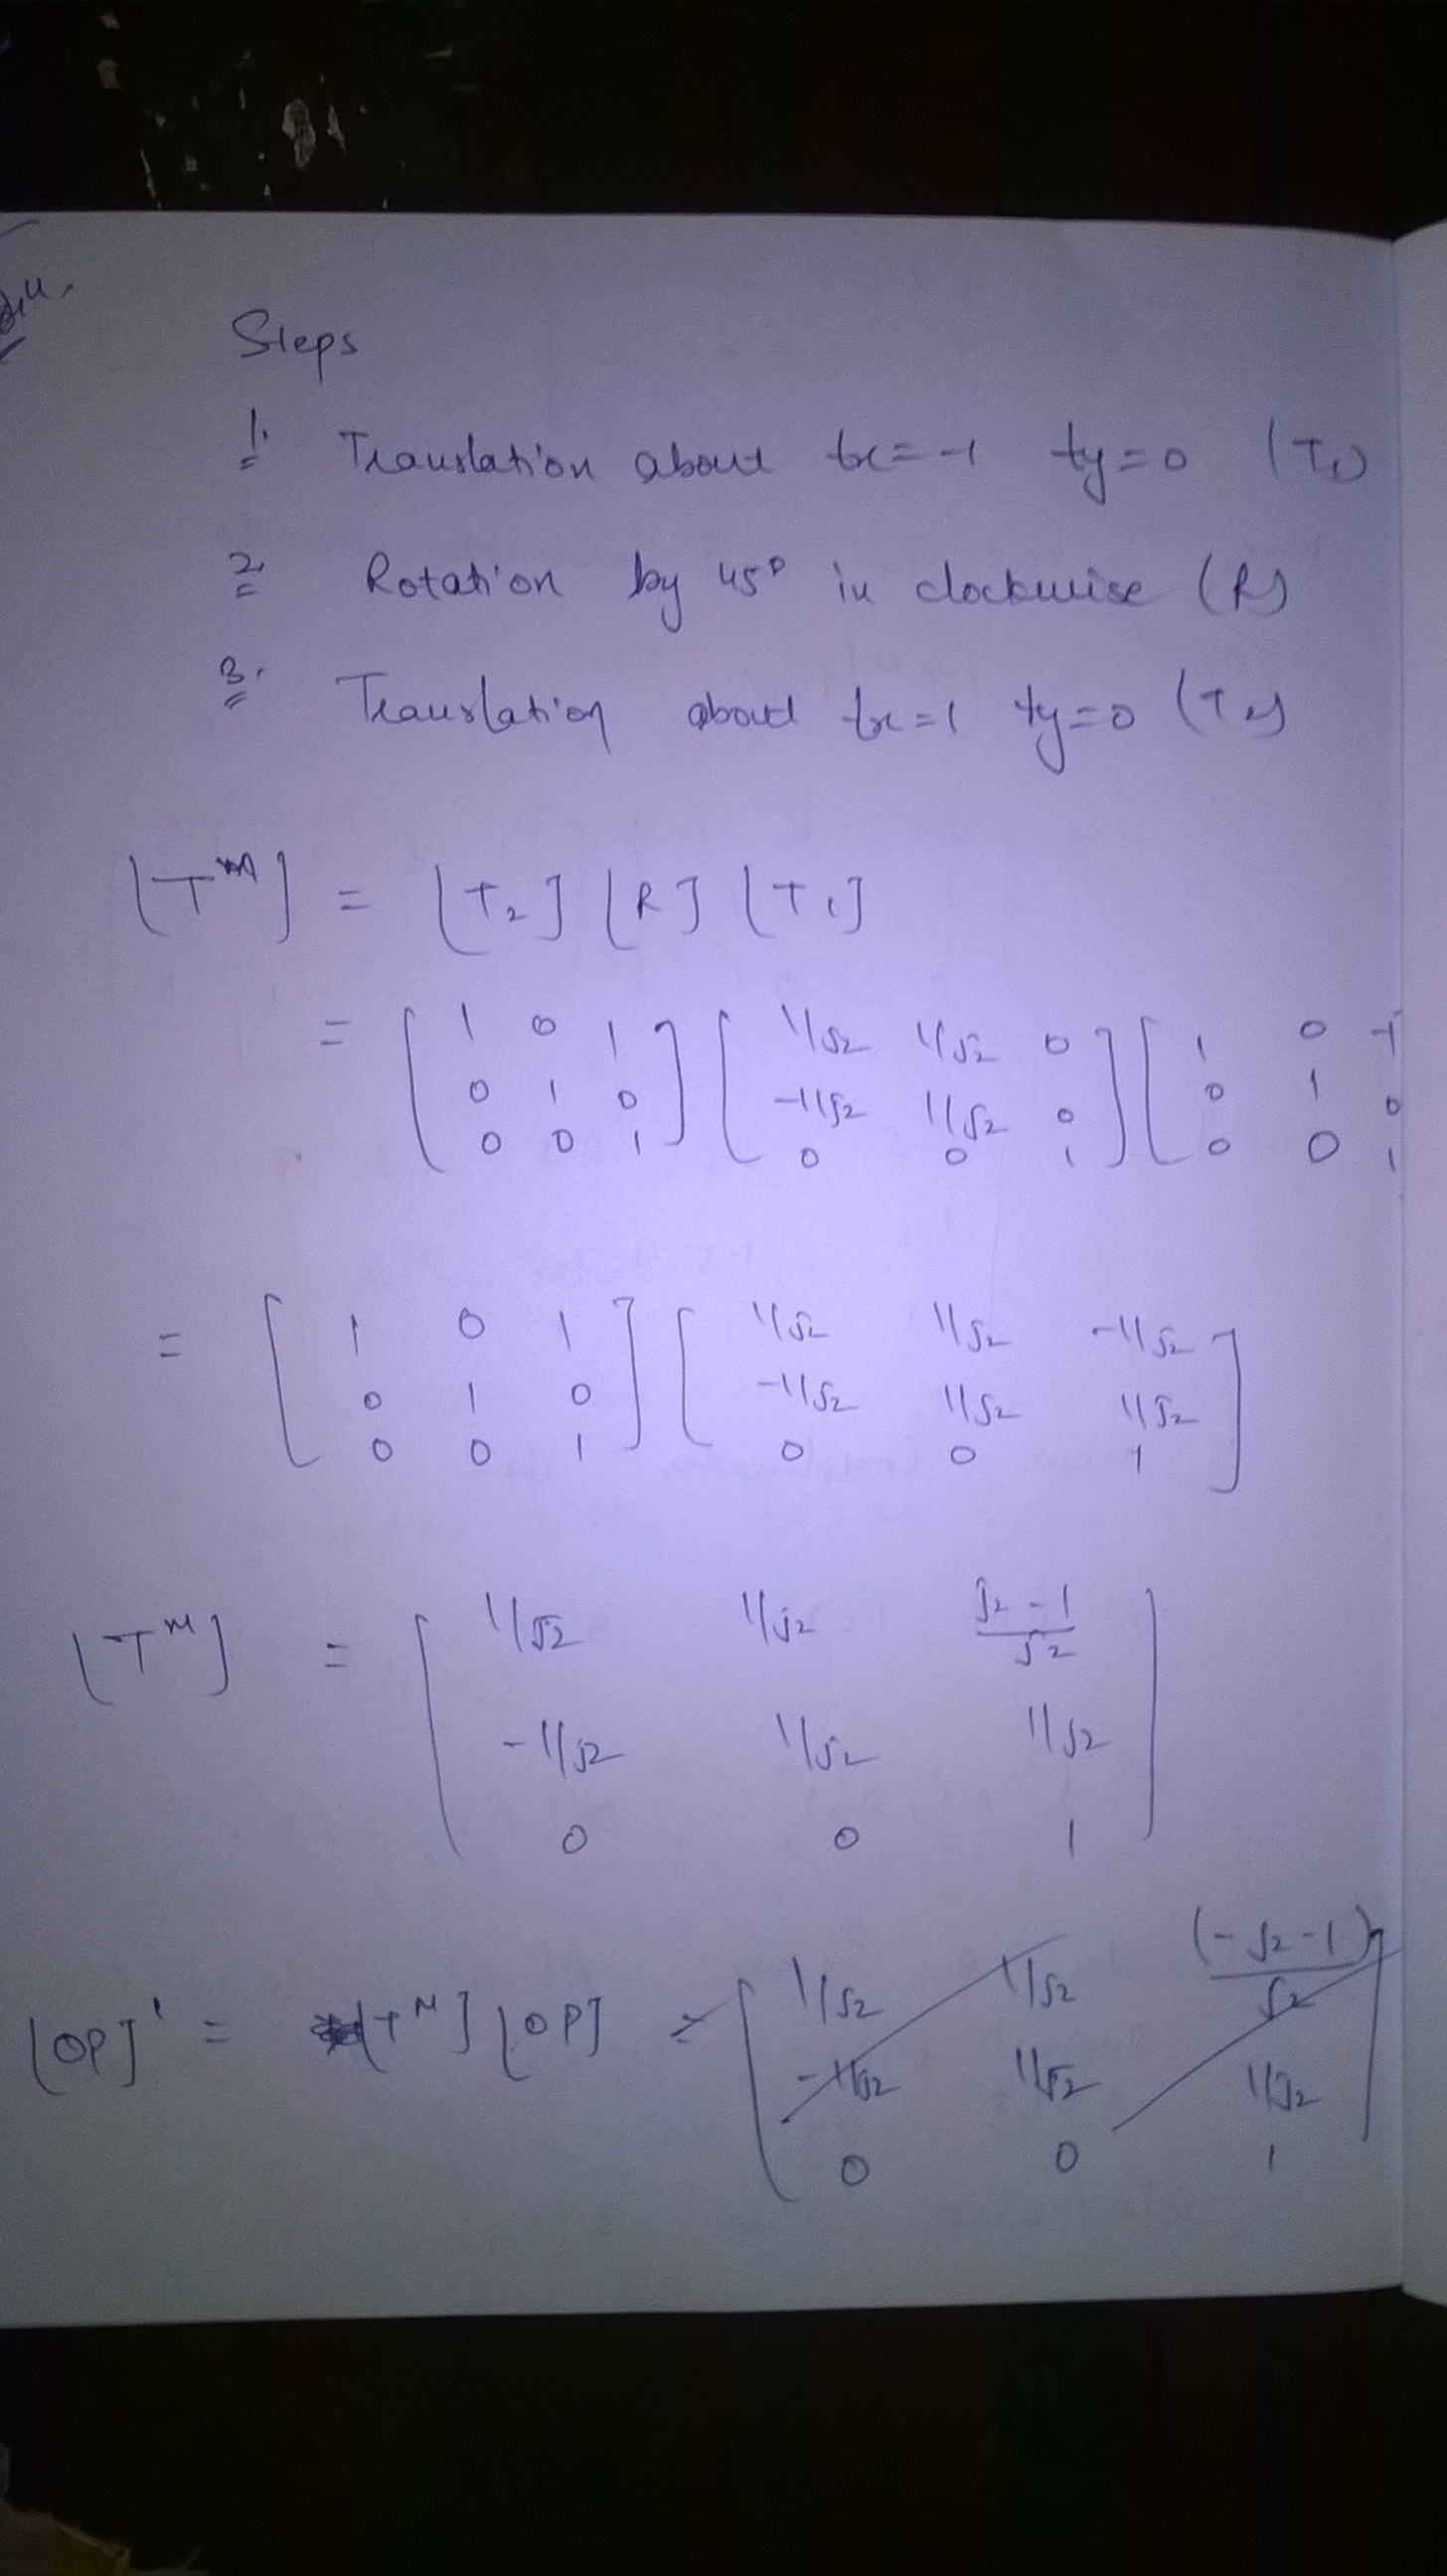 Steps
1. Translation about tx=-1 ty=0 (T1)
2. Rotation by 45° in clockwise (R)
3. Translation about tx=1 ty=0 (T2)
[T^M] = [T2] [R] [T1]
= [ 1 0 1 ] [ 1/√2 1/√2 0 ] [ 1 0 -1
0 1 0 -1/√2 1/√2 0 0 1 0
0 0 1 0 0 1 0 0 1
= [ 1 0 1 ] [ 1/√2 1/√2 -1/√2 ]
0 1 0 -1/√2 1/√2 1/√2
0 0 1 0 0 1
[T^M] = [ 1/√2 1/√2 (√2-1)/√2 ]
-1/√2 1/√2 1/√2
0 0 1
[OP]' = [T^M] [OP] = [ 1/√2 1/√2 (-√2-1)/√2 ]
-1/√2 1/√2 1/√2
0 0 1